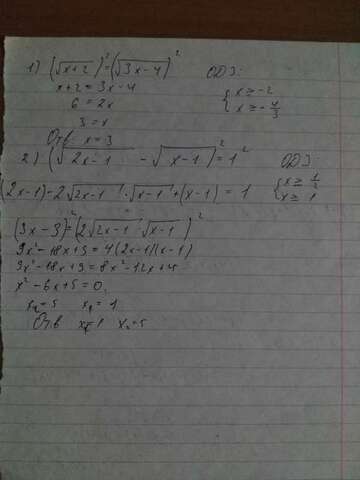 1) (√x+2)² = (√3x-4)² ОДЗ:
x+2 = 3x-4 { x ≥ -2
6 = 2x x ≥ -4/3
3 = x
Отв: x = 3
2) (√2x-1 - √x-1)² = 1² ОДЗ
(2x-1) - 2√2x-1 · √x-1 + (x-1) = 1 { x ≥ 1/2
x ≥ 1
(3x-3)² = (2√2x-1 √x-1)²
9x² - 18x + 9 = 4(2x-1)(x-1)
9x² - 18x + 9 = 8x² - 12x + 4
x² - 6x + 5 = 0,
x₁ = 5 x₂ = 1
Отв x₁ = 1 x₂ = 5